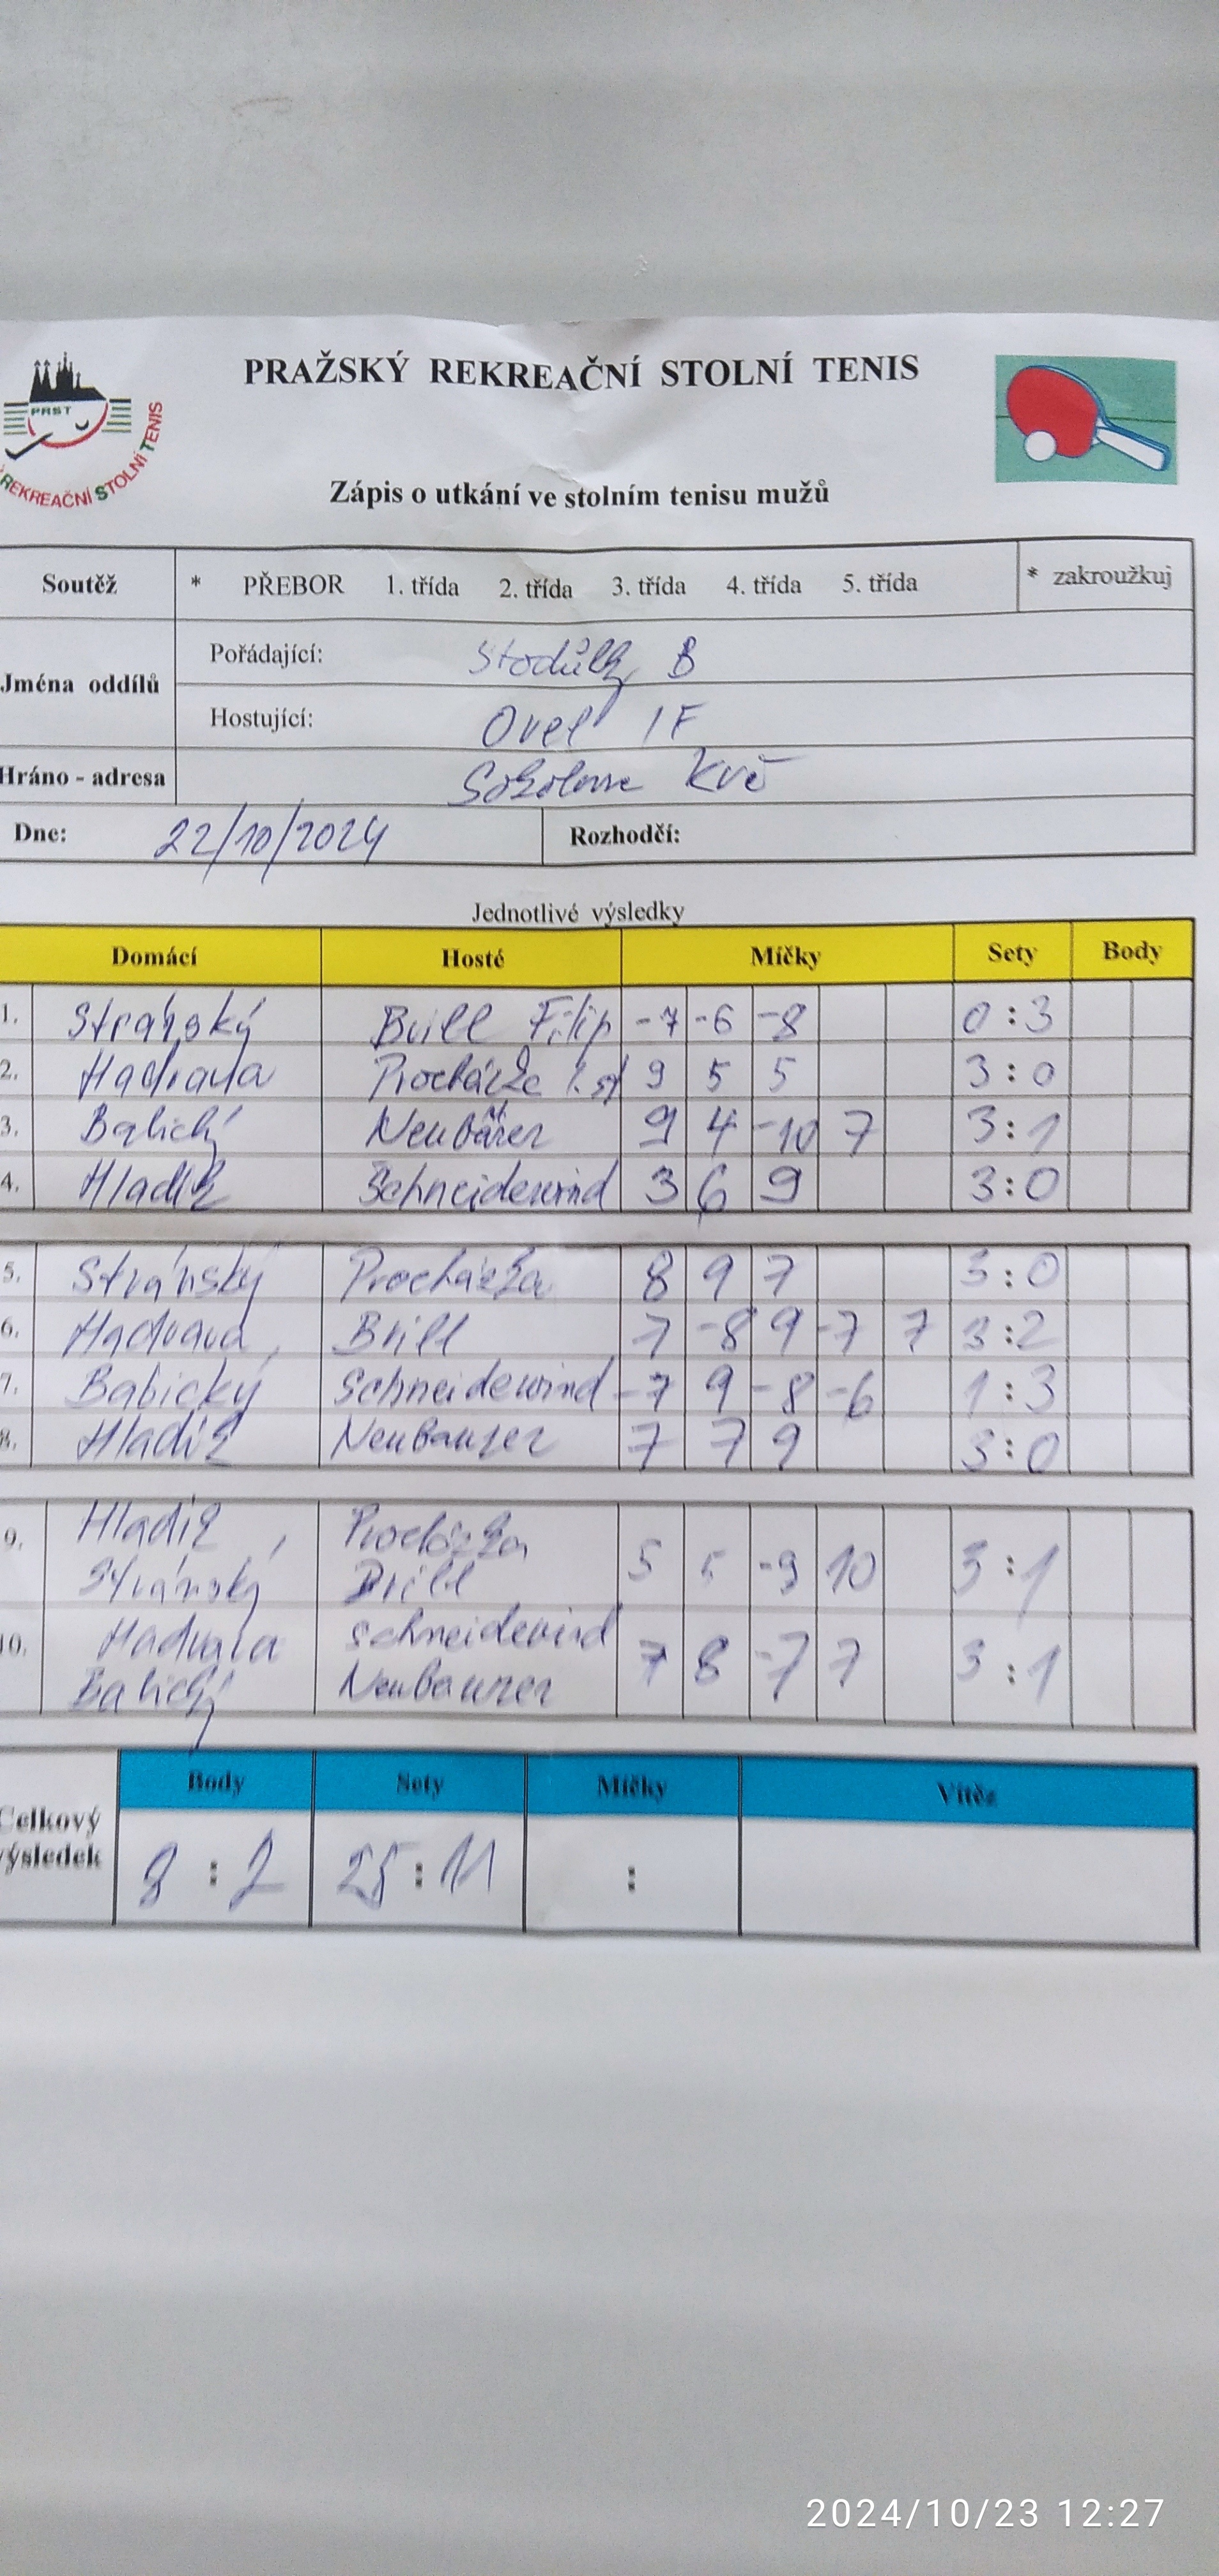 PRAŽSKÝ REKREAČNÍ STOLNÍ TENIS
PRST
REKREAČNÍ STOLNÍ TENIS
Zápis o utkání ve stolním tenisu mužů
Soutěž * PŘEBOR 1. třída 2. třída 3. třída 4. třída 5. třída * zakroužkuj
Jména oddílů
Pořádající: Stodůlky B
Hostující: Orel 1F
Hráno - adresa Sokolovna
Dne: 22/10/2024 Rozhodčí:
Jednotlivé výsledky
Domácí Hosté Míčky Sety Body
1. Stránský Brill Filip -7 -6 -8 0:3
2. Hadrava Procházka 9 5 5 3:0
3. Babický Neubauer 9 4 -10 7 3:1
4. Hladík Schneidewind 3 6 9 3:0
5. Stránský Procházka 8 9 7 3:0
6. Hadrava Brill 7 -8 9 -7 7 3:2
7. Babický Schneidewind -7 9 -8 -6 1:3
8. Hladík Neubauer 7 7 9 3:0
9. Hladík, Procházka
Stránský Brill 5 5 -9 10 3:1
10. Hadrava Schneidewind 7 8 -7 7 3:1
Babický Neubauer
Body Sety Míčky Vítěz
Celkový
výsledek 8:2 25:11 :
2024/10/23 12:27